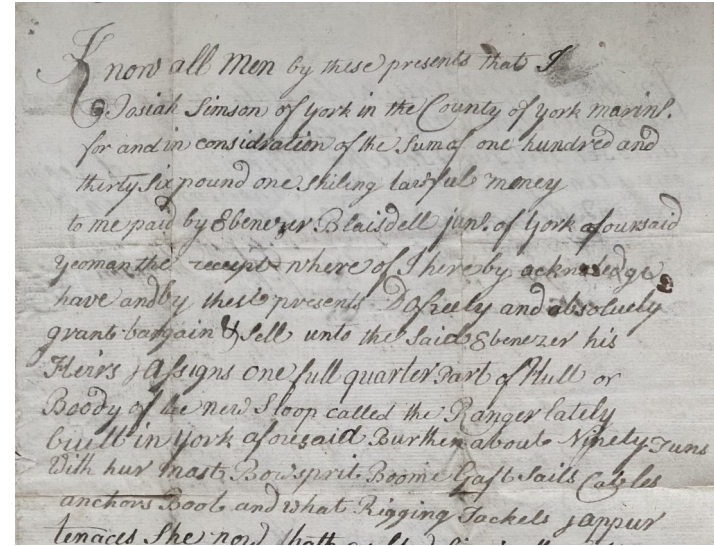 Know all Men by these presents that I
Josiah Simson of york in the County of york marinr.
for and in considration of the Sum of one hundred and
thirty six pound one Shiling lawful money
to me paid by Ebenezer Blaisdell junr. of york afoursaid
yeoman the receipt where of I here by acknoledge
have and by these presents Do freely and absoluely
grant bargain & Sell unto the Said Ebenezer his
Heirs & Assigns one full quarter Part of Hull or
Boody of the new Sloop called the Ranger lately
built in york aforesaid Burthen about Ninety Tuns
With hur Mast Bowsprit Boome Gaft Sails Cables
anchors Boot and what Rigging Tackels & appur
tenaces She now hath